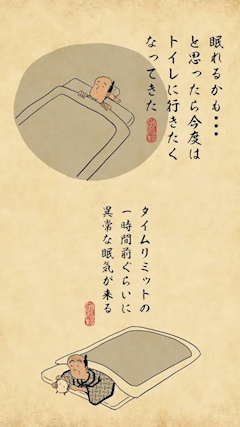 眠れるかも•••
と思ったら今度は
トイレに行きたく
なってきた
タイムリミットの
一時間前ぐらいに
異常な眠気が来る